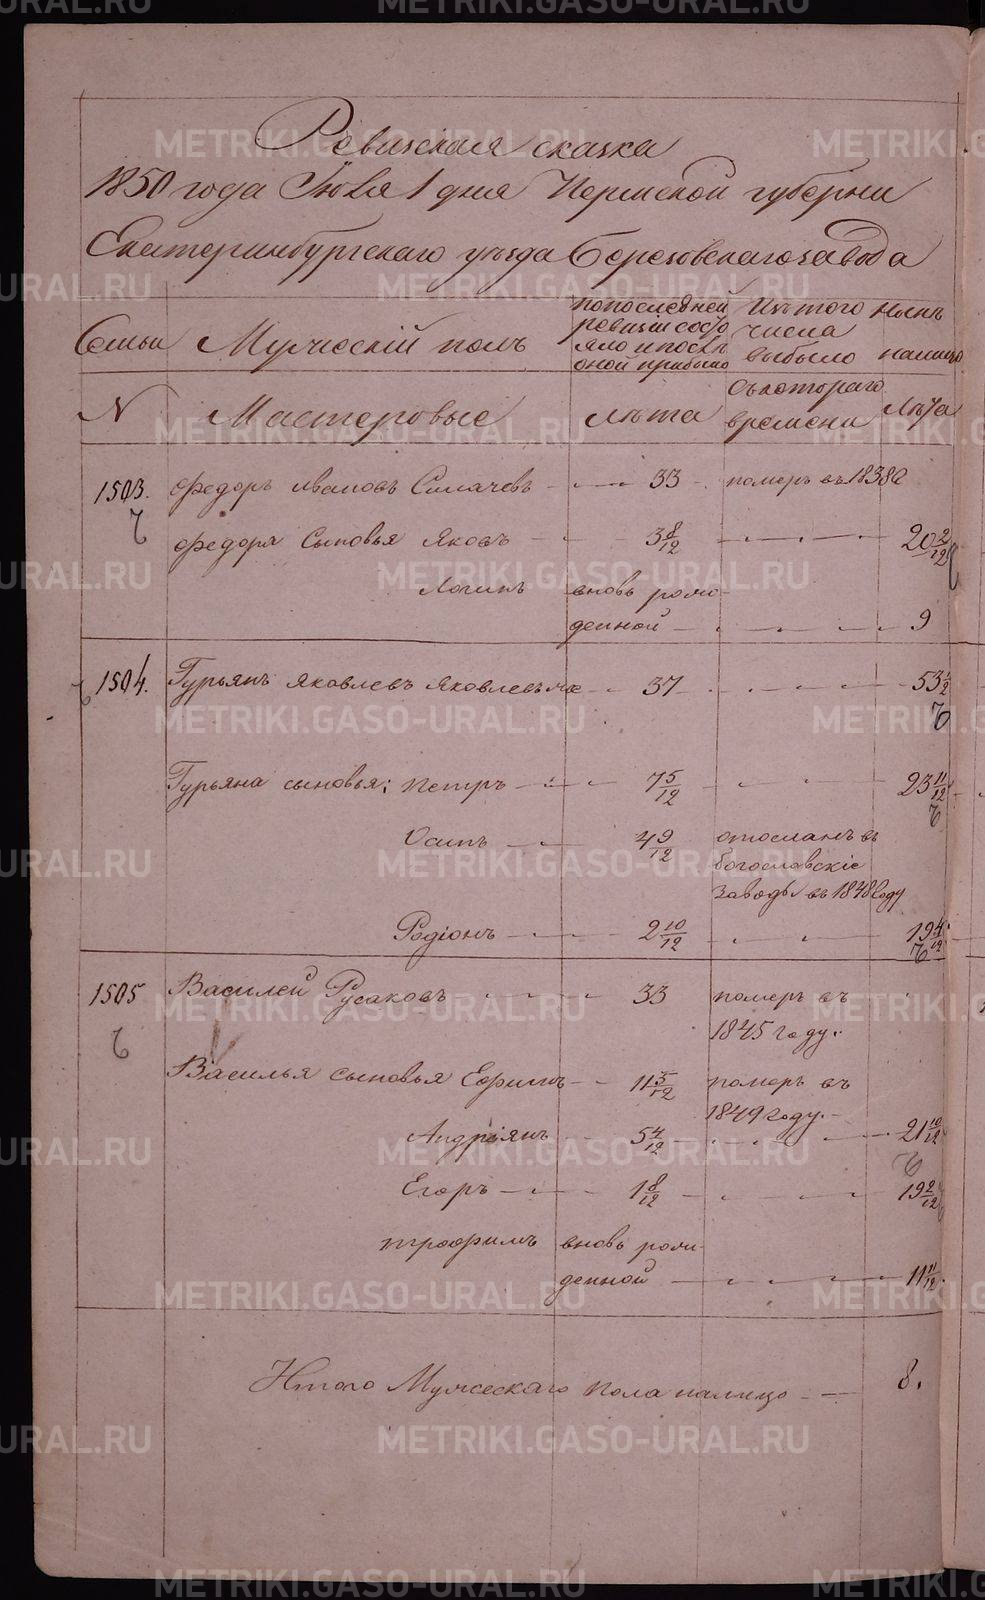 Ревизская сказка
1850 года Июля 1 дня Пермской губернии
Екатеринбургскаго уезда Березовскаго завода
Семьи Мужескiй полъ по последней ревизiи состояло и после оной прибыло Изъ того числа выбыло ныне на лицо
N Мастеровые лета Съ котораго времени Лета
1503. Федоръ Ивановъ 33 померъ въ 1838 г
Федора Сыновья Яковъ 3 8/12 20 2/12
Логинъ вновь рож-
денной 9
1504. Гурьянъ Яковлевъ 37 53 1/2
Гурьяна сыновья: Петръ 7 5/12 23 11/12
Осипъ 4 9/12 отосланъ въ
богословскiе
заводы въ 1848 году
Родiонъ 2 10/12 19 4/12
1505 Василей Русаковъ 33 померъ въ
1845 году.
Василья сыновья Ефимъ 11 5/12 померъ въ
1849 году.
Андрiянъ 5 4/12 21 10/12
Егоръ 1 8/12 19 2/12
Трофимъ вновь рож-
денной 11 11/12
Итого Мужескаго пола налицо 8.
METRIKI.GASO-URAL.RU